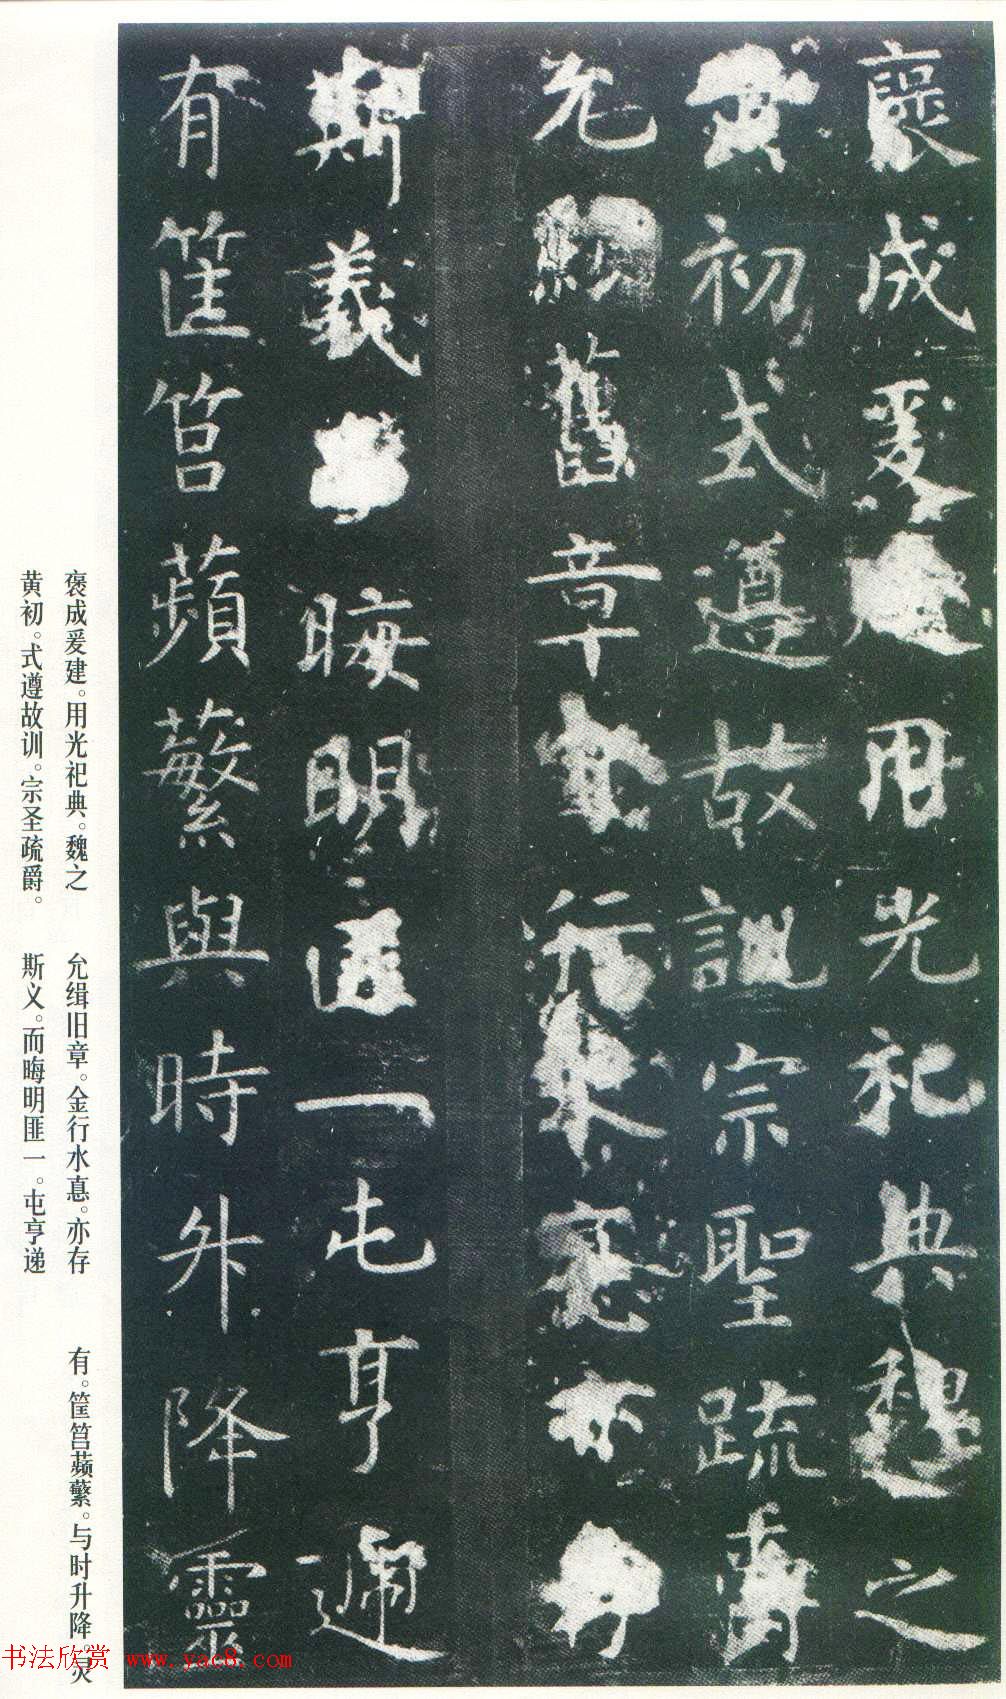 褒成爰建用光祀典魏之
黃初式遵故訓宗聖疏爵
允緝舊章金行水悳亦存
斯義而晦明匪一屯亨遞
有筐筥蘋蘩與時升降靈
褒成爰建。用光祀典。魏之
黄初。式遵故训。宗圣疏爵。
允缉旧章。金行水悳。亦存
斯义。而晦明匪一。屯亨递
有。筐筥蘋蘩。与时升降。灵
书法欣赏 www.yac8.com